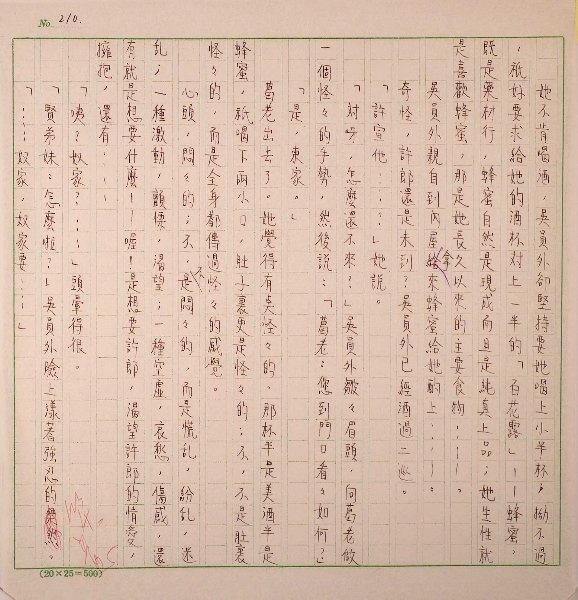 No. 210.
她不肯喝酒,吳員外卻堅持要她喝上小半杯;拗不過
,祇好要求給她的酒杯對上一半的「百花露」——蜂蜜,
既是藥材行,蜂蜜自然是現成而且是純真上品;她生性就
是喜歡蜂蜜,那是她長久以來的主要食物……。
吳員外親自到內屋拿來蜂蜜給她酌上……。
奇怪,許郎還是未到?吳員外已經酒過二巡。
「許官他……」她說。
「對呀,怎麼還不來?」吳員外皺々眉頭,向葛老做
一個怪々的手勢,然後說:「葛老:您到門口看々如何?」
「是,東家。」
葛老出去了。她覺得有莫怪々的,那杯半是美酒半是
蜂蜜,祇喝下兩小口,肚子裏更是怪々的;不,不是肚裏
怪々的,而是全身都傳過怪々的感覺。
心頭,悶々的;不,不是悶々的,而是慌乱,紛乱,迷
乱;一種激動,顫慄,渴望;一種空虛,哀愁,傷感,還
有就是想要什麼——喔!是想要許郎,渴望許郎的情愛,
擁抱,還有……
「咦?奴家?……」頭暈得很。
「賢弟妹:怎麼啦?」吳員外臉上漾著強忍的
「……奴家,奴家要……」
(20×25=500)